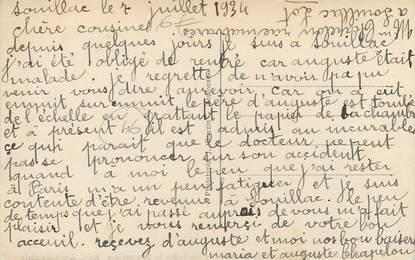 souillac le 7 juillet 1934
chère cousine
depuis quelques jours je suis a souillac
j'ai été obligé de rentré car auguste était
malade. je regrette de n'avoir pas pu
venir vous dire aurevoir car on a eut
ennuit sur ennuit le père d'auguste est tombé
de l'echelle en grattant le papier de ba chambre
et à présent il est admis au incurable
ce qui parait que le docteur peut
pas se prononcer sur son accident.
quand à moi le peu que j'ai rester
à Paris m'a un peu fatiguer et je suis
contente d'être revenue à souillac. le peu
de temps que j'ai passé auprès de vous m'a fait
plaisir et je vous remerci de votre bon
acceuil. reçevez d'auguste et moi nos bon baisers
maria et auguste chapelou
a souillac Lot